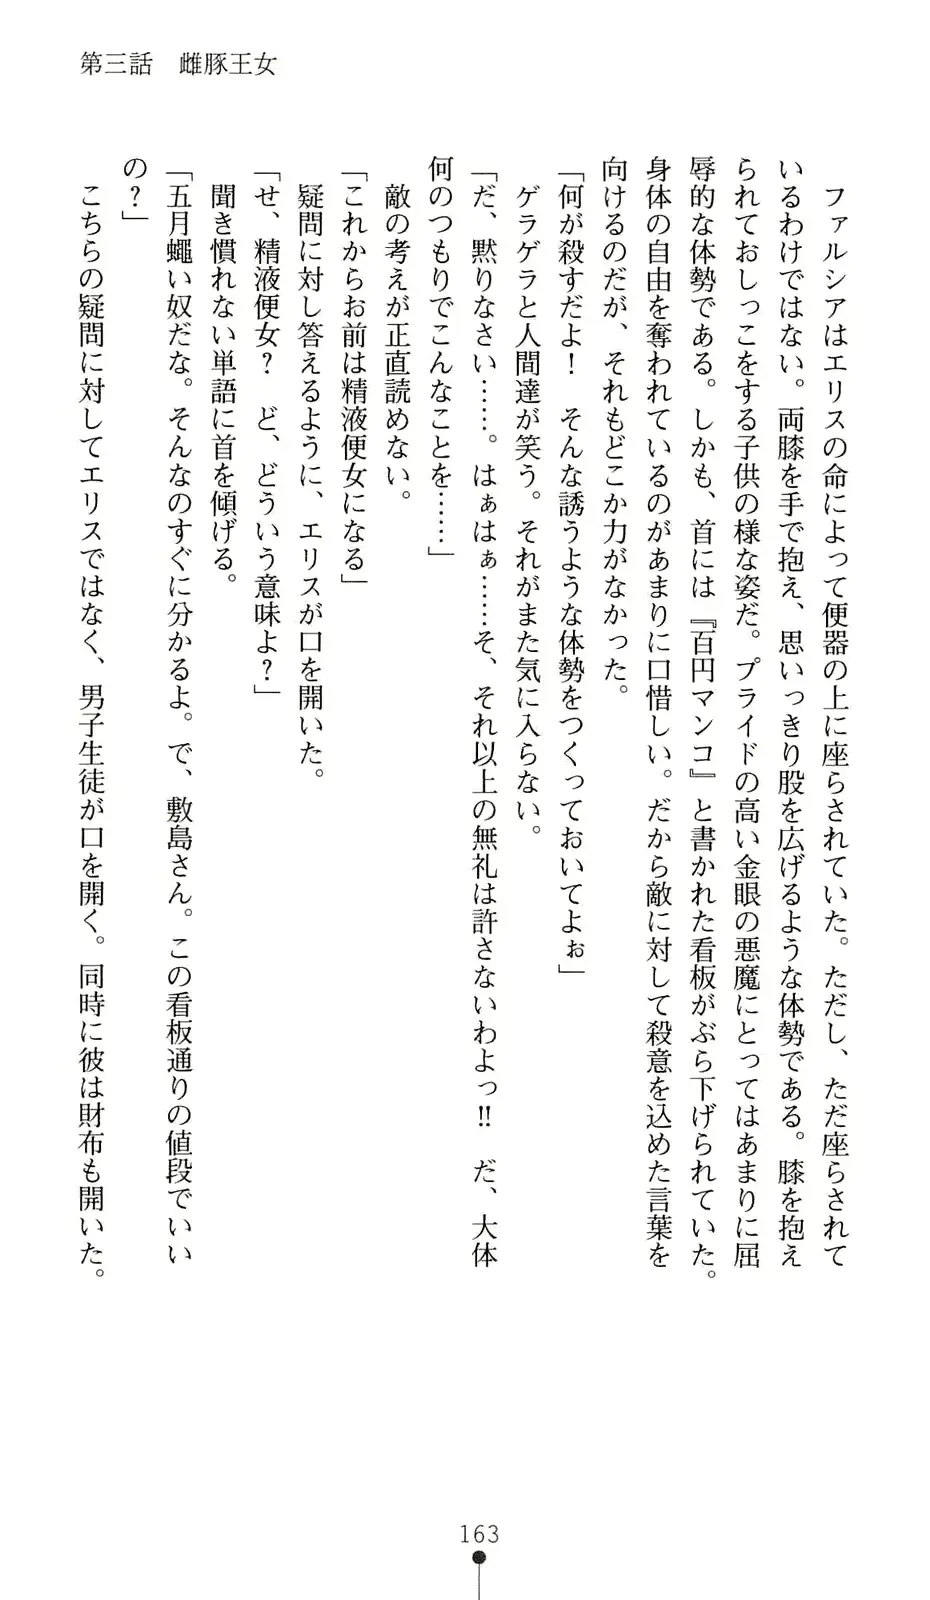 第三話　雌豚王女
ファルシアはエリスの命によって便器の上に座らされていた。ただし、ただ座らされて
いるわけではない。両膝を手で抱え、思いっきり股を広げるような体勢である。膝を抱え
られておしっこをする子供の様な姿だ。プライドの高い金眼の悪魔にとってはあまりに屈
辱的な体勢である。しかも、首には『百円マンコ』と書かれた看板がぶら下げられていた。
身体の自由を奪われているのがあまりに口惜しい。だから敵に対して殺意を込めた言葉を
向けるのだが、それもどこか力がなかった。
「何が殺すだよ！　そんな誘うような体勢をつくっておいてよぉ」
ゲラゲラと人間達が笑う。それがまた気に入らない。
「だ、黙りなさい……。はぁはぁ……そ、それ以上の無礼は許さないわよっ‼　だ、大体
何のつもりでこんなことを……」
敵の考えが正直読めない。
「これからお前は精液便女になる」
疑問に対し答えるように、エリスが口を開いた。
「せ、精液便女？　ど、どういう意味よ？」
聞き慣れない単語に首を傾げる。
「五月蠅い奴だな。そんなのすぐに分かるよ。で、敷島さん。この看板通りの値段でいい
の？」
こちらの疑問に対してエリスではなく、男子生徒が口を開く。同時に彼は財布も開いた。
163